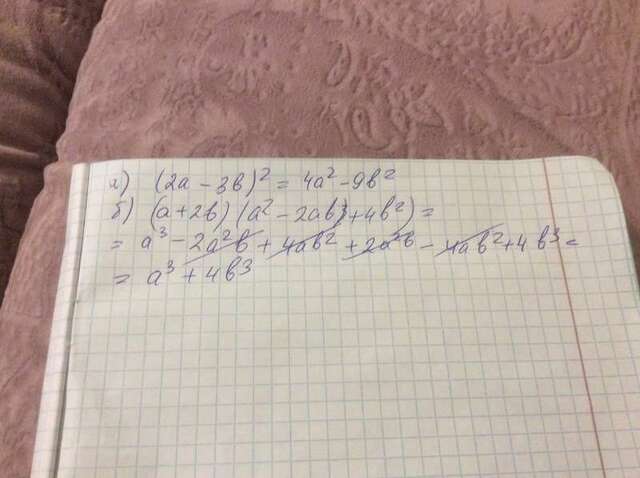 а) (2a - 3b)² = 4a² - 9b²
б) (a + 2b) (a² - 2ab + 4b²) =
= a³ - 2a²b + 4ab² + 2a²b - 4ab² + 4b³ =
= a³ + 4b³